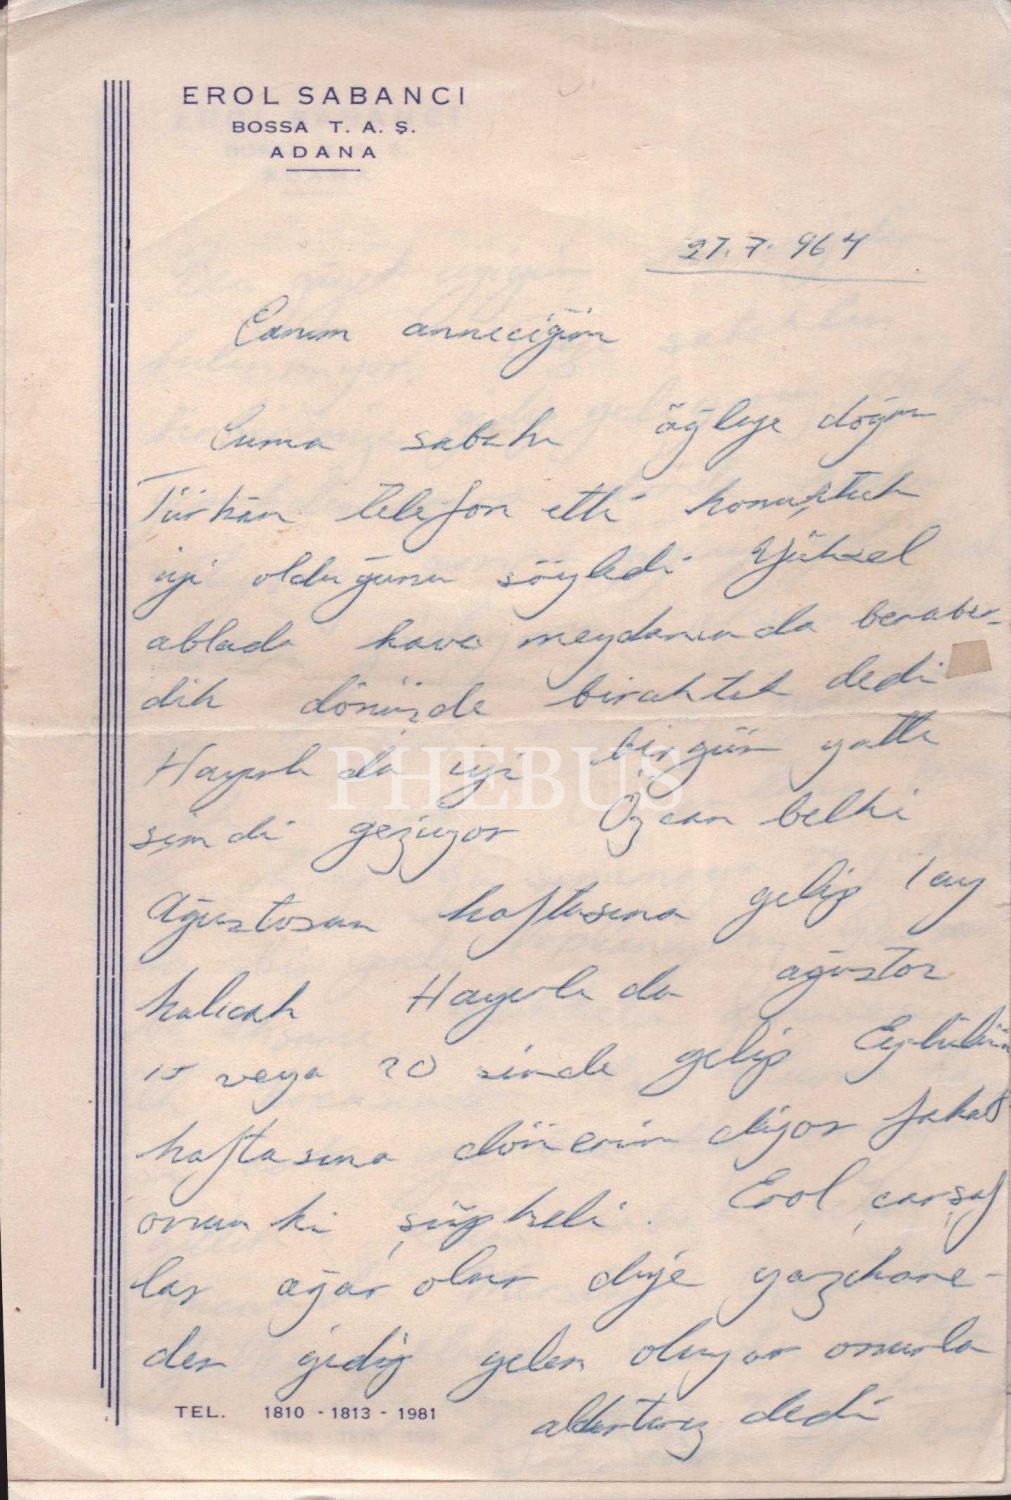 EROL SABANCI
BOSSA T. A. Ş.
ADANA
27.7.964
Canım anneciğim
Cuma sabahı öğleye doğru
Türkân telefon etti konuştuk
iyi olduğunu söyledi Yüksel
ablada hava meydanında beraber-
dik dönüşde bıraktık dedi
Hayırlı da iyi birgün yattı
şimdi geziyor Özcan belki
Ağustosun haftasına gelip 1 ay
kalıcak da ağustos
15 veya 20 sinde gelip Eylülün
haftasına dönerim diyor fakat
onun ki şüpheli. Erol çarşaf
lar ağar olur diye yazıhane-
den gidip gelen oluyor onlarla
aldırtırız dedi
TEL. 1810 - 1813 - 1981
PHEBUS